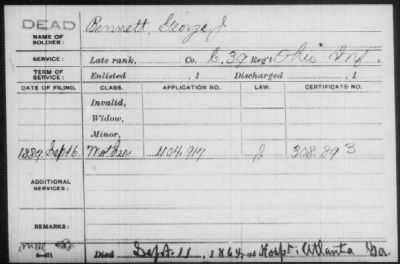 DEAD
NAME OF SOLDIER: Bennett, George J
SERVICE: Late rank, Co. C. 39 Reg't Ohio Inf.
TERM OF SERVICE: Enlisted , 1 Discharged , 1
DATE OF FILING. CLASS. APPLICATION NO. LAW. CERTIFICATE NO.
Invalid,
Widow,
Minor,
1889. Sept 6. Mother 404.917 J 308.893
ADDITIONAL SERVICES:
REMARKS:
Died Sept. 11, 1864, at Hospt: Atlanta Ga